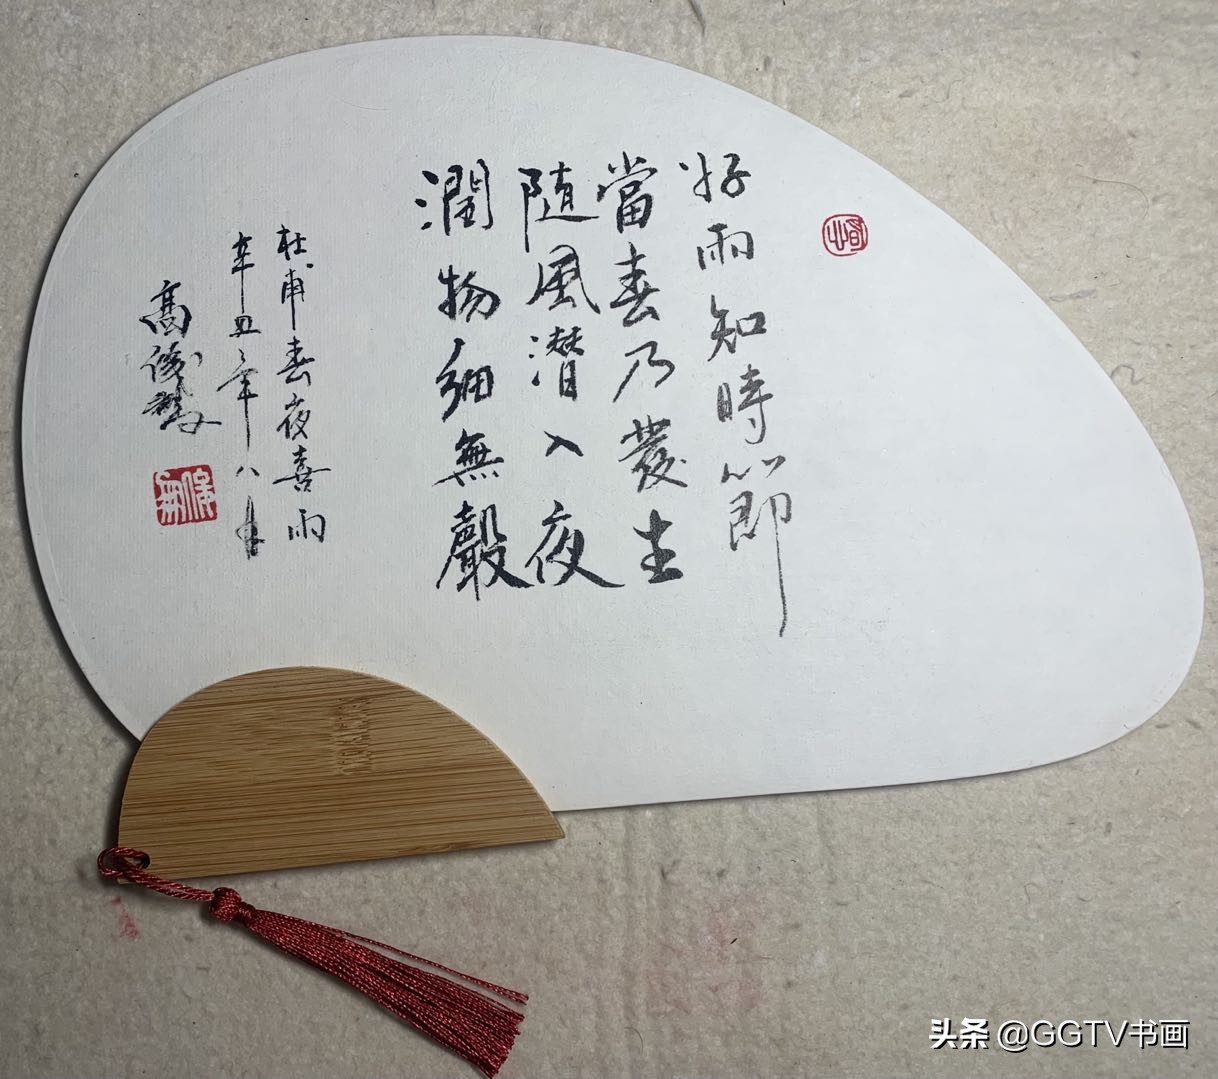 好雨知時節
當春乃發生
隨風潜入夜
潤物細無聲
杜甫春夜喜雨
辛丑年八月
高俊
头条 @GGTV书画